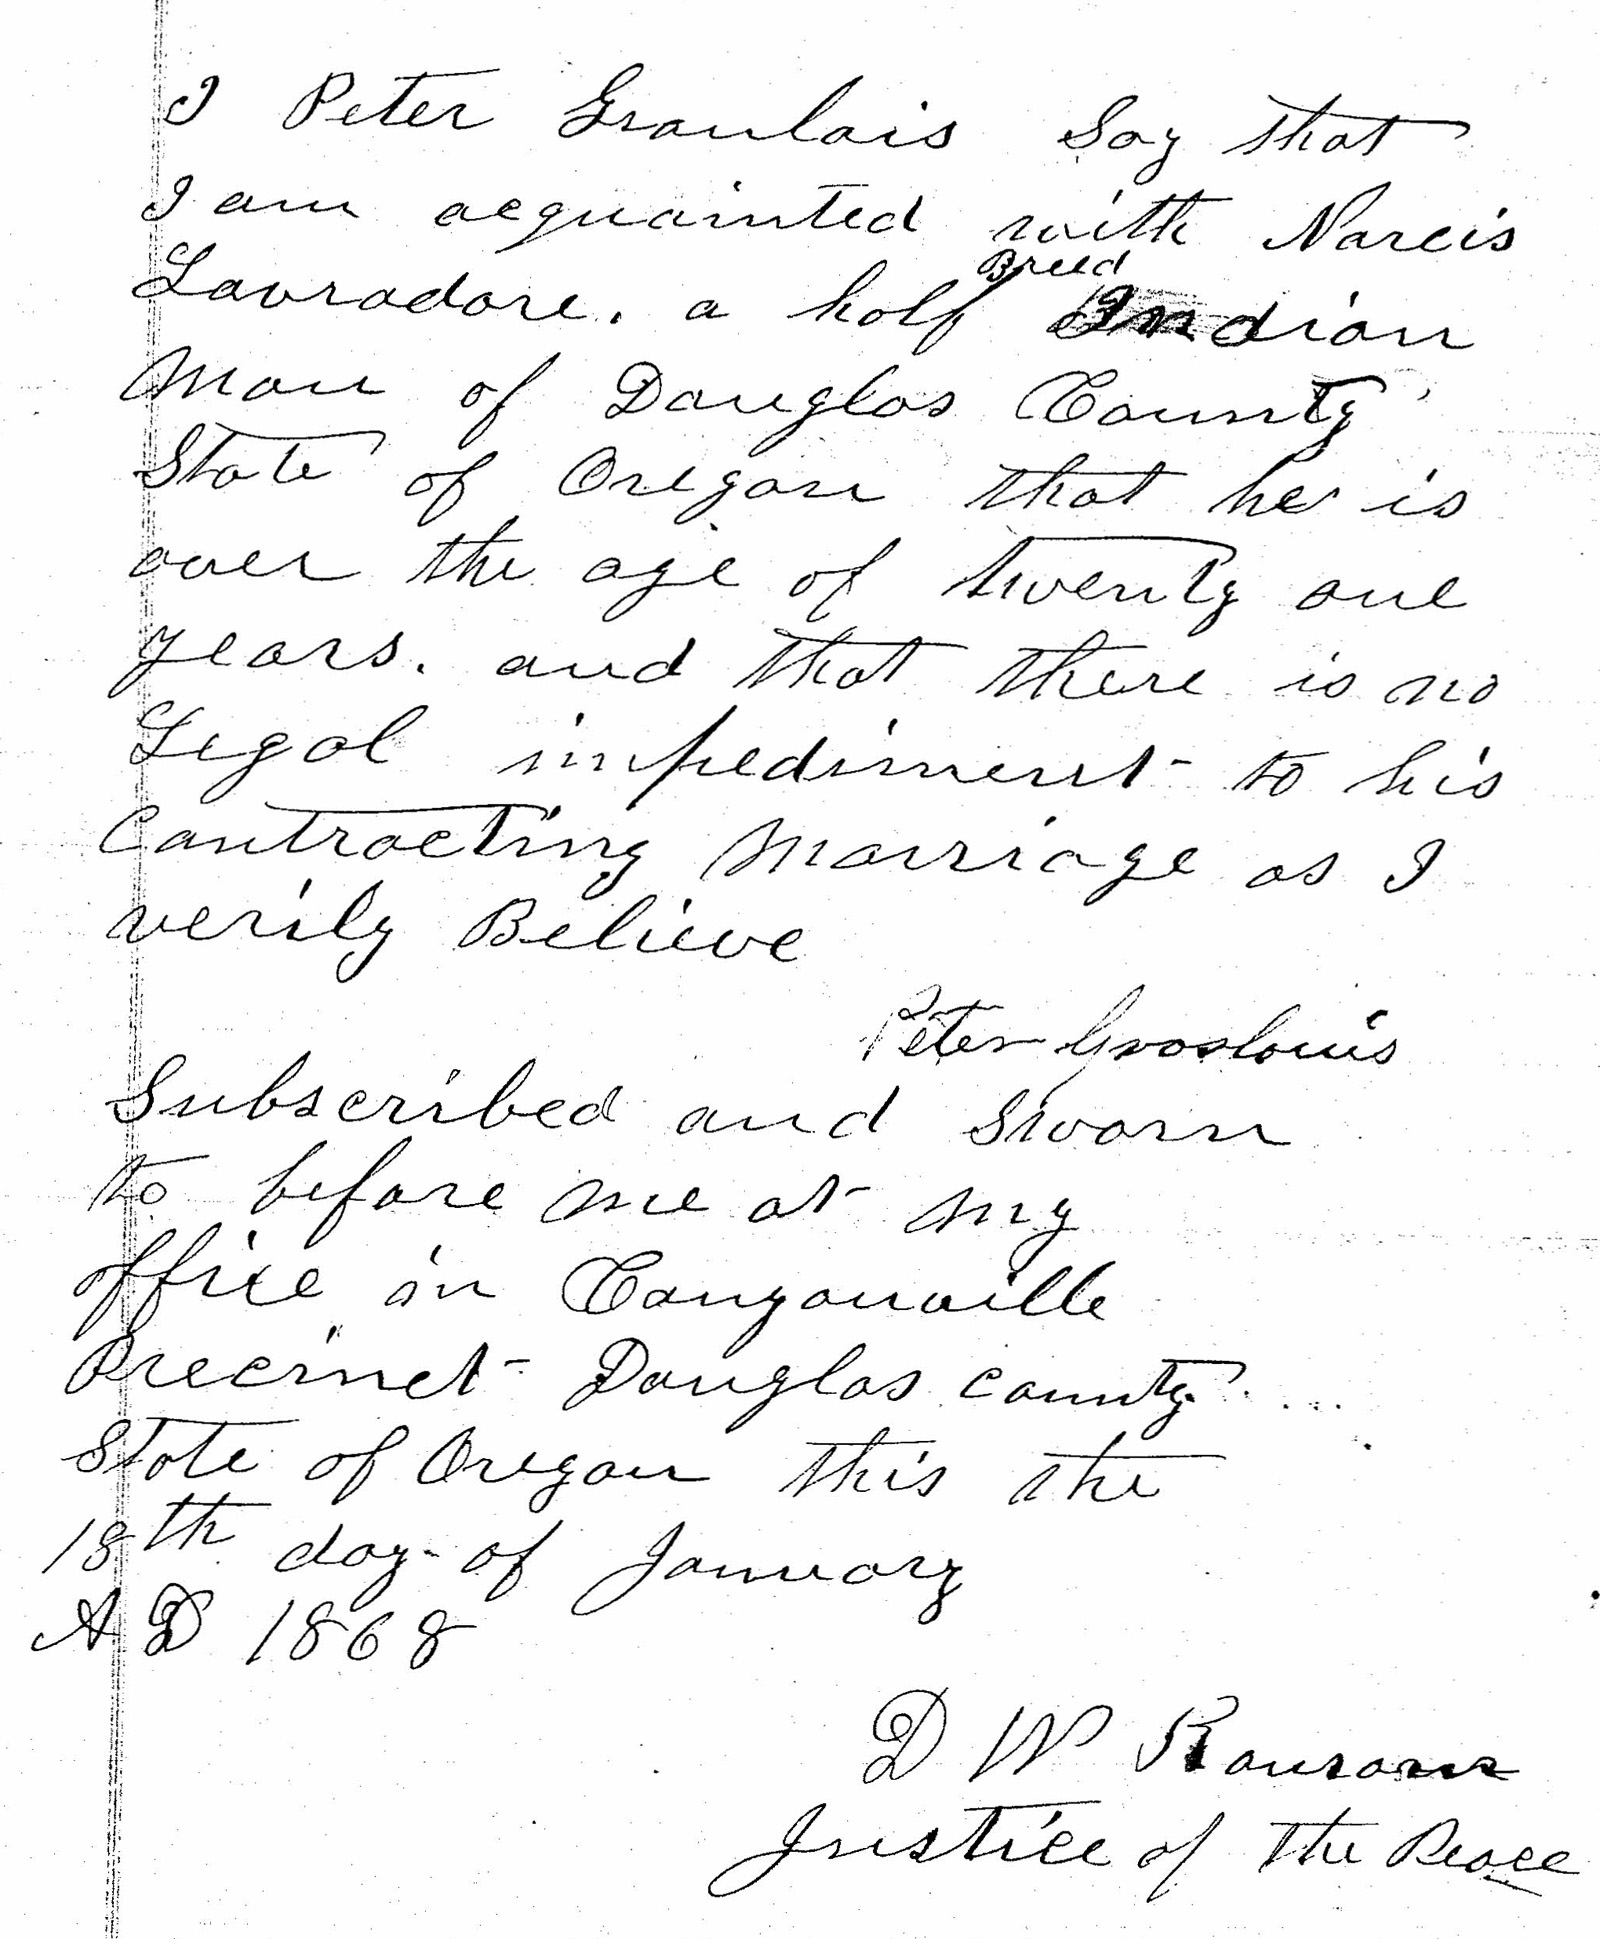 I Peter Graulais Say that
I am acquainted with Narcis
Lavradore. a half Breed Indian
Man of Douglas County
State of Oregon that he is
over the age of twenty one
years. and that there is no
Legal impediment to his
Contracting Marriage as I
verily Believe
Peter Groslouis
Subscribed and Sworn
to before me at my
office in Canyonville
Precinct Douglas county
State of Oregon this the
18th day of January
A D 1868
D W Ransom
Justice of the Peace